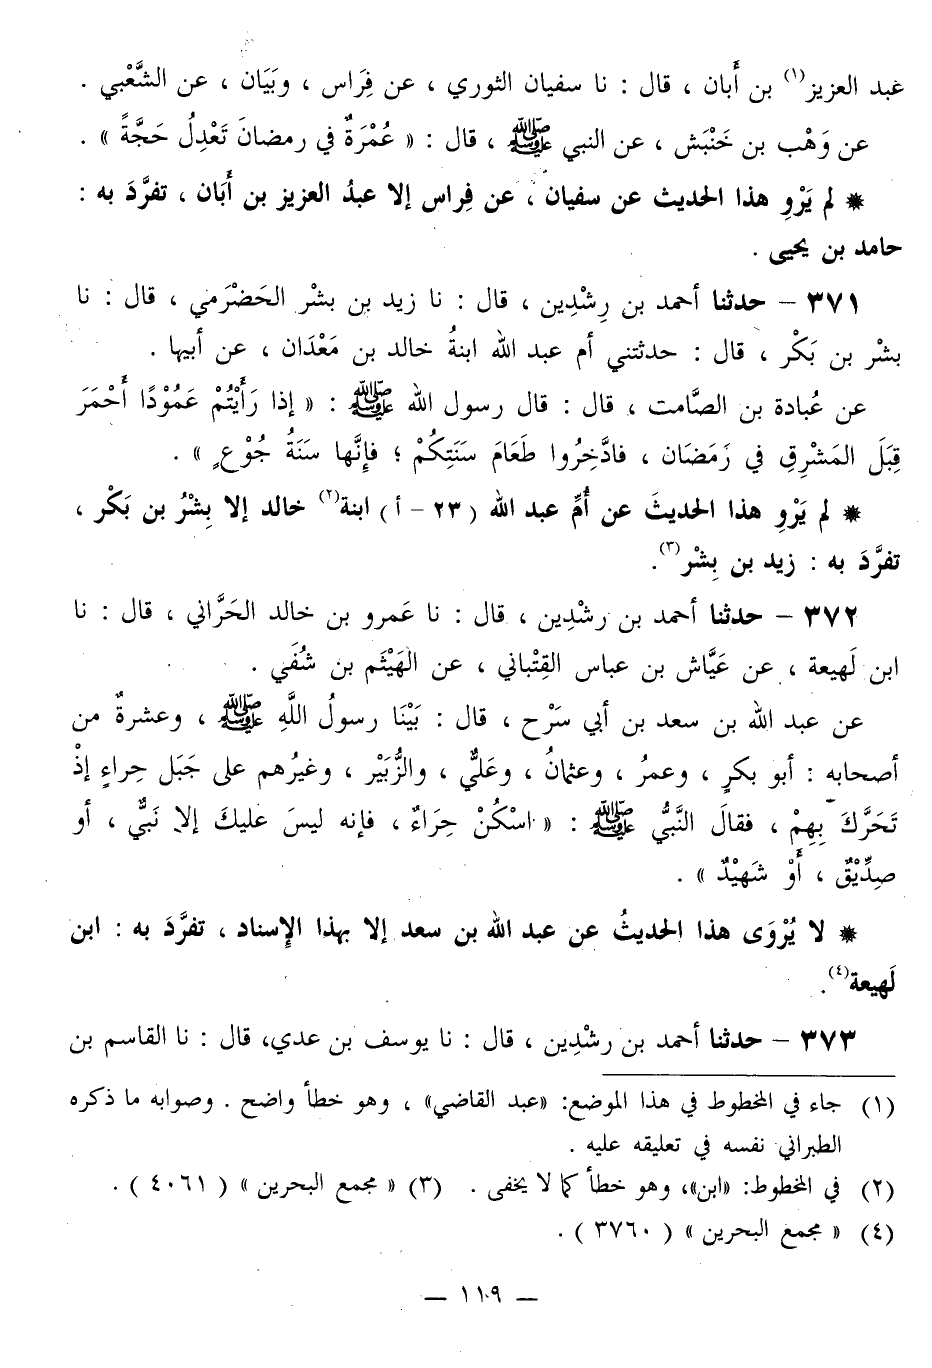 عبد العزيز(١) بن أَبان ، قال : نا سفيان الثوري ، عن فِرَاس ، وبَيَان ، عن الشَّعْبي .
عن وَهْب بن خَنْبَش ، عن النبي ﷺ ، قال : « عُمْرَةٌ في رمضانَ تَعْدِلُ حَجَّةً » .
* لم يَرْوِ هذا الحديث عن سفيان ، عن فِراس إلا عبدُ العزيز بن أَبَان ، تفرَّدَ به :
حامد بن يحيى .
٣٧١ – حدثنا أحمد بن رِشْدِين ، قال : نا زيد بن بشْر الحَضْرَمي ، قال : نا
بشْر بن بَكْر ، قال : حدثتني أم عبد الله ابنةُ خالد بن مَعْدَان ، عن أبيها .
عن عُبادة بن الصَّامت ، قال : قال رسول الله ﷺ : « إذا رَأَيْتُمْ عَمُوْدًا أَحْمَرَ
قِبَلَ المَشْرِقِ في رَمَضَان ، فادَّخِرُوا طَعَامَ سَنَتِكُمْ ؛ فإنَّها سَنَةُ جُوْعٍ » .
* لم يَرْوِ هذا الحديثَ عن أُمِّ عبد الله ( ٢٣ – أ ) ابنة(٢) خالد إلا بِشْرُ بن بَكْر ،
تفرَّدَ به : زيد بن بِشْر(٣).
٣٧٢ – حدثنا أحمد بن رشْدِين ، قال : نا عَمرو بن خالد الحَرَّاني ، قال : نا
ابن لَهيعة ، عن عَيَّاش بن عباس القِتْباني ، عن الهَيْثَم بن شُفَي .
عن عبد الله بن سعد بن أبي سَرْح ، قال : بَيْنَا رسولُ اللَّهِ ﷺ ، وعشرةٌ من
أصحابه : أبو بكرٍ ، وعمرُ ، وعثمانُ ، وعَليٌّ ، والزُّبَيْر ، وغيرُهم على جَبَل حِراءٍ إذْ
تَحَرَّكَ بِهِمْ ، فقالَ النَّبيُّ ﷺ : « اسْكُنْ حِرَاءُ ، فإنه ليسَ عليكَ إلا نَبيٌّ ، أو
صِدِّيْقٌ ، أَوْ شَهِيْدٌ » .
* لا يُرْوَى هذا الحديثُ عن عبد الله بن سعد إلا بهذا الإسناد ، تفرَّدَ به : ابن
لَهِيعة(٤).
٣٧٣ – حدثنا أحمد بن رشْدِين ، قال : نا يوسف بن عدي، قال : نا القاسم بن
(١) جاء في المخطوط في هذا الموضع: «عبد القاضي» ، وهو خطأ واضح . وصوابه ما ذكره
الطبراني نفسه في تعليقه عليه .
(٢) في المخطوط: «ابن»، وهو خطأ كما لا يخفى . (٣) « مجمع البحرين » ( ٤٠٦١ ) .
(٤) « مجمع البحرين » ( ٣٧٦٠ ) .
— ١١٩ —